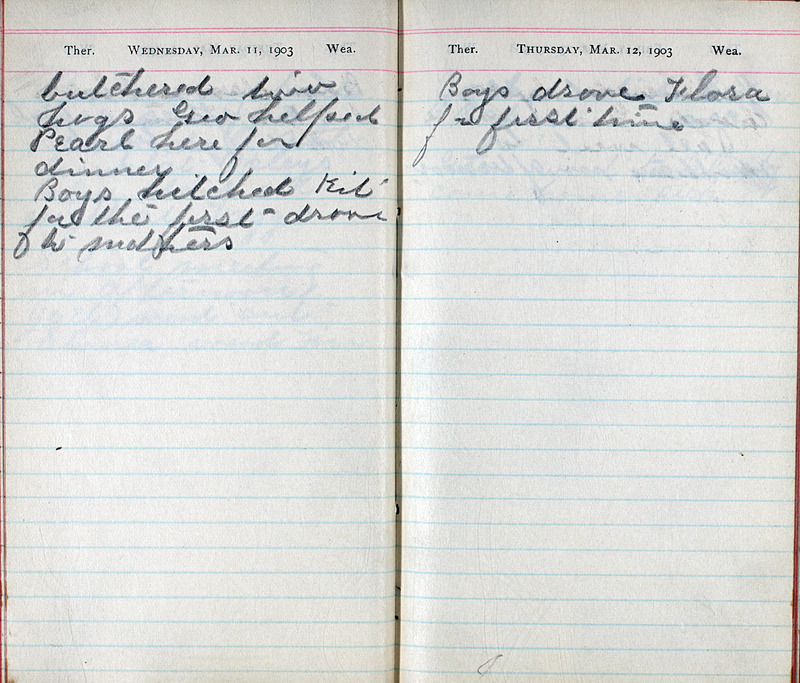 Ther. Wednesday, Mar. 11, 1903 Wea.
butchered two
hogs Geo helped
Pearl here for
dinner
Boys hitched Kit
for the first - drove
to
Ther. Thursday, Mar. 12, 1903 Wea.
Boys drove Flora
for first time